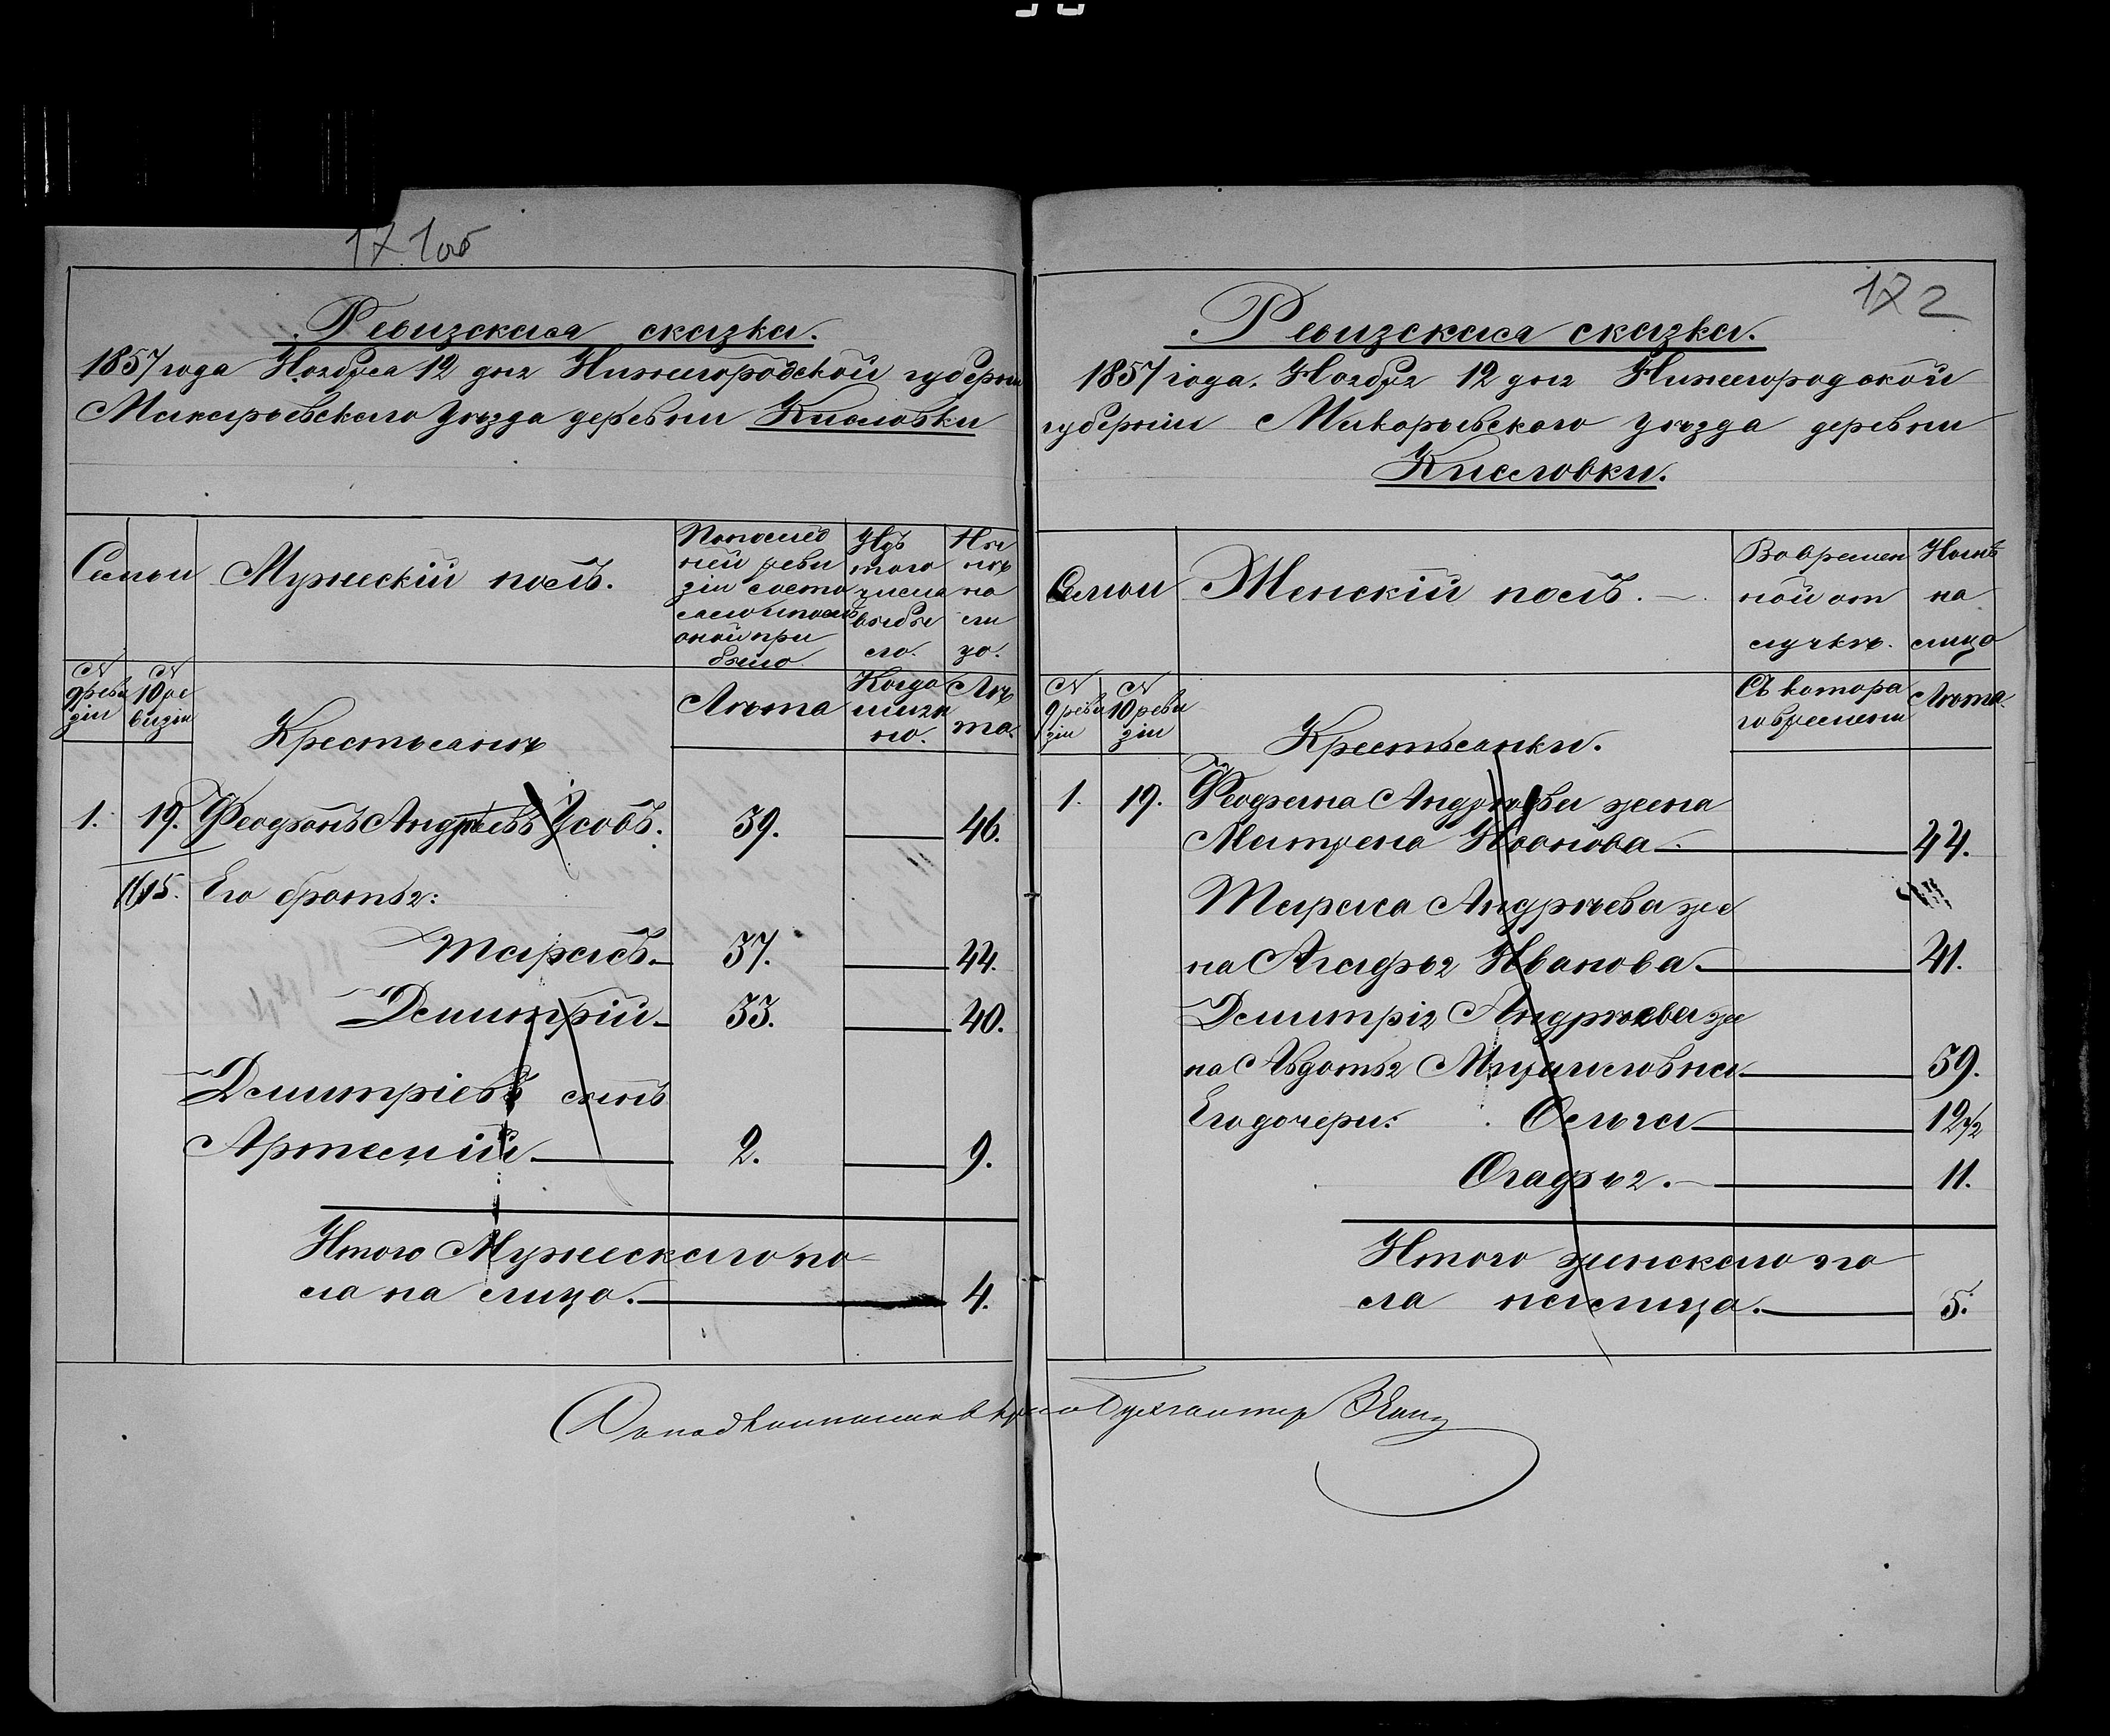 171об
Ревизская сказка.
1857 года Ноября 12 дня Нижегородской губерніи
Макарьевскаго уѣзда деревни Кисловки
Семьи
Мужескій полъ.
По послѣд
ней реви
зіи состо
яло и послѣ
оной при
было.
Изъ
того
числа
выбы
ло.
Ны
нѣ
на
ли
цо.
№
9 реви
зіи
№
10 ре
визіи
Крестьянѣ
Лѣта
Когда
имян
но.
Лѣ
та.
1. 19. Феофанъ Андреевъ Усовъ. 39. 46.
115. Его братья:
Тарасъ. 37. 44.
Димитрій 33. 40.
Димитріевъ сынъ
Артемій 2. 9.
Итого Мужескаго по-
ла на лицо. 4.
172
Ревизская сказка.
1857 года. Ноября 12 дня Нижегородской
губерніи Макарьевскаго уѣзда деревни
Кисловки.
Семьи
Женскій полъ.
Во времен
ной от
лучкѣ.
Нынѣ
на
лицо
№
9 реви
зіи
№
10 реви
зіи
Крестьянки.
Съ котора
го времени
Лѣта.
1. 19. Феофана Андрѣева жена
Матрена Иванова 44.
Тараса Андрѣева же
на Агафья Иванова. 41.
Димитрія Андрѣева же
на Авдотья Михайловна 39.
Его дочери: Ольга 12 1/2
Огафья. 11.
Итого женскаго по
ла на лицо. 5.
Бухгалтер